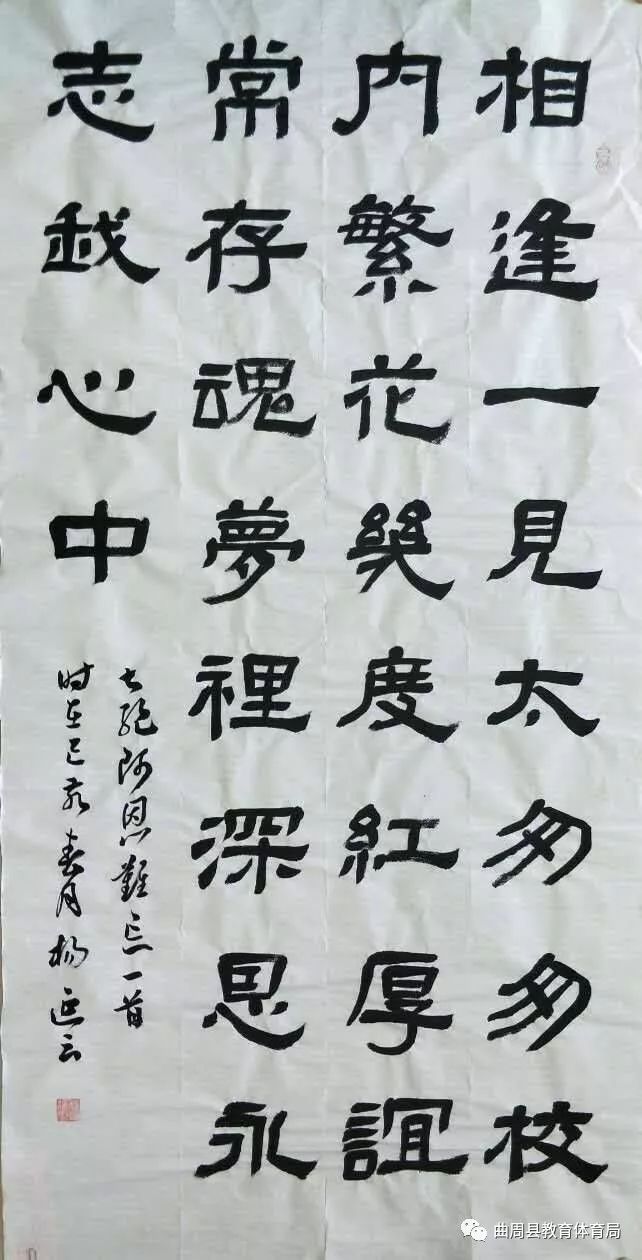 相逢一見太匆匆校
内繁花幾度紅厚誼
常存魂夢裡深恩永
志我心中
七絕师恩難忘一首
时在己亥春月杨延云
曲周县教育体育局